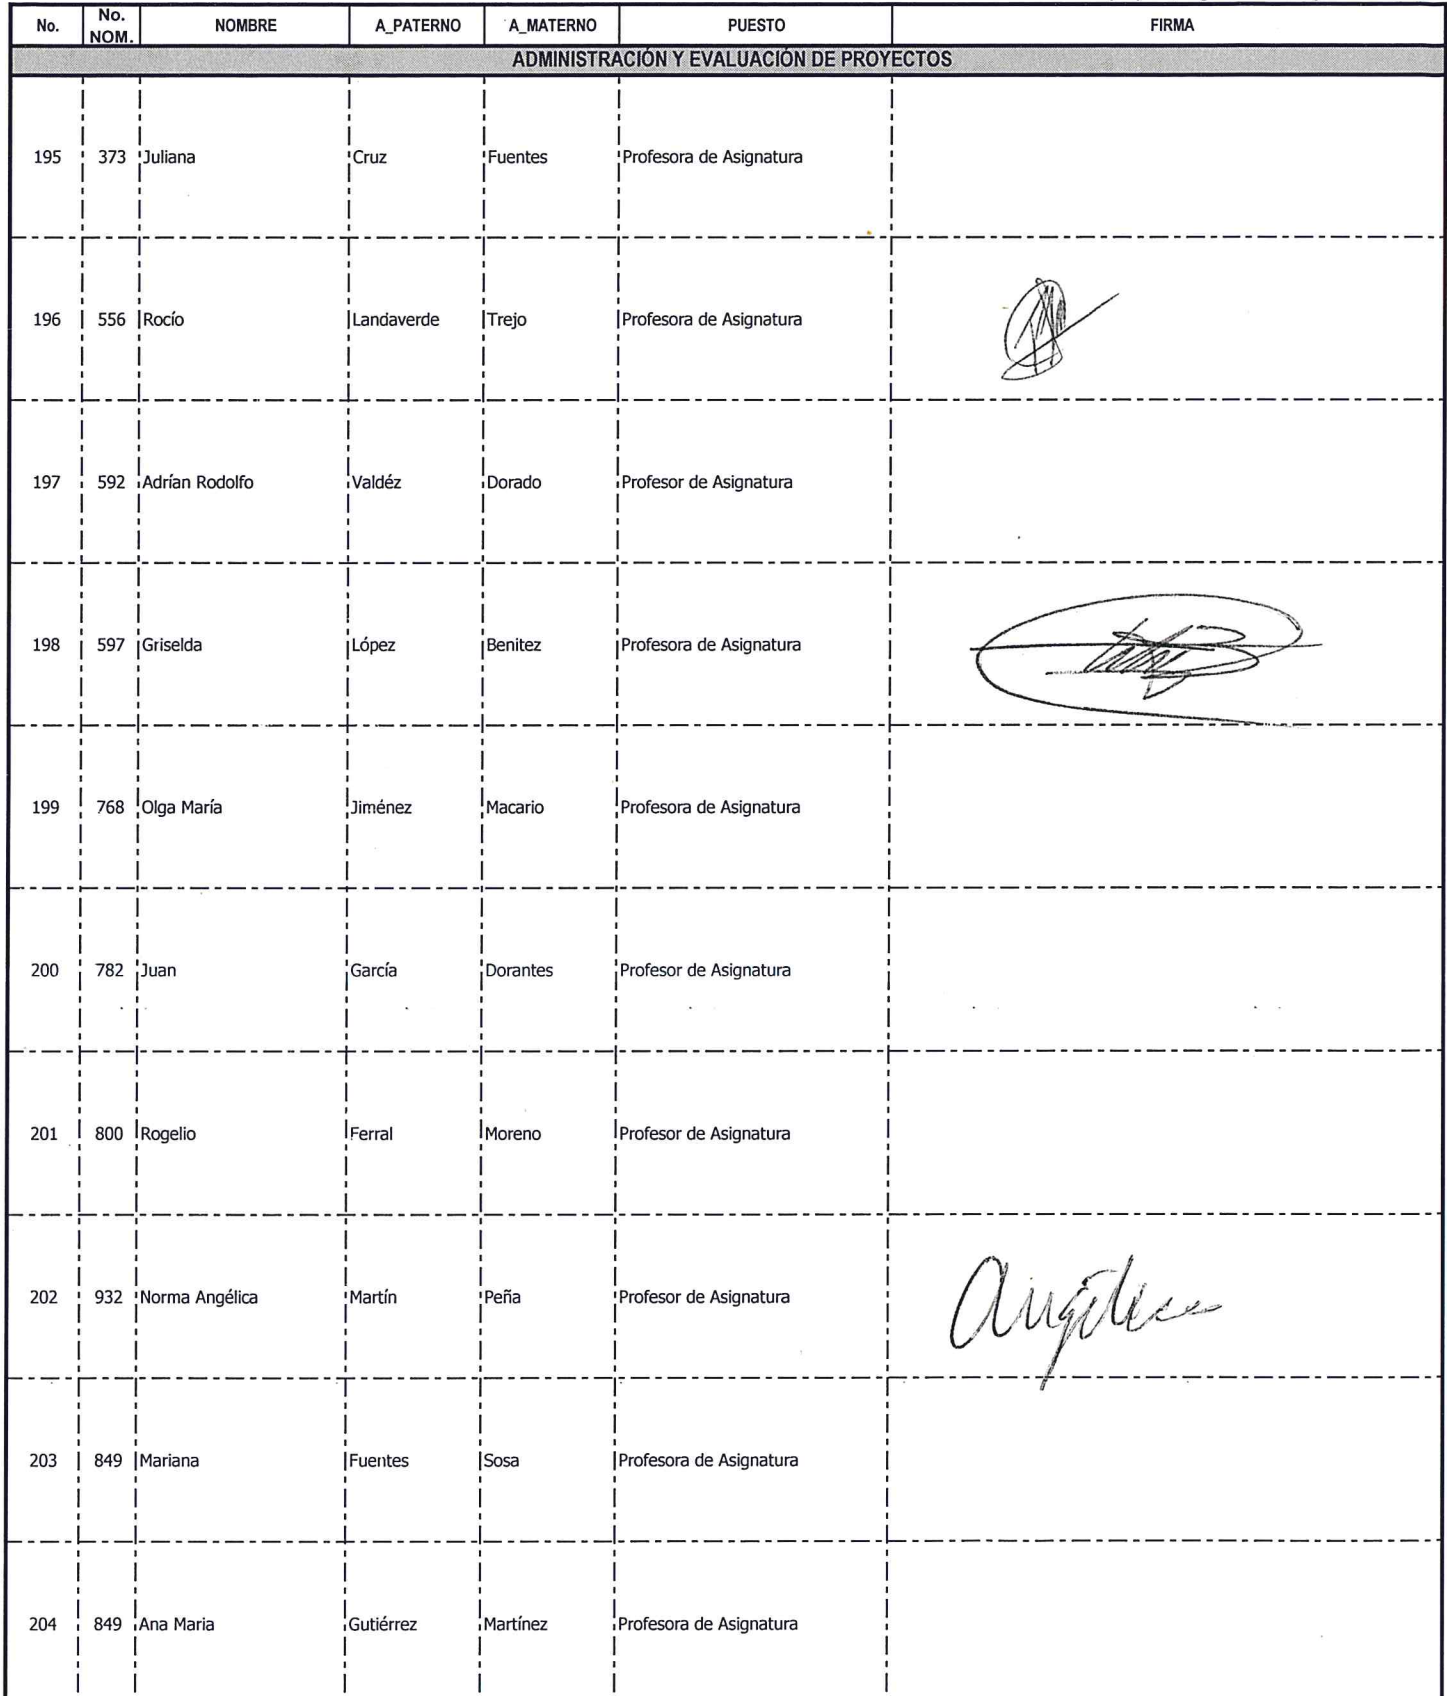 No. No. NOM. NOMBRE A_PATERNO A_MATERNO PUESTO FIRMA
ADMINISTRACIÓN Y EVALUACIÓN DE PROYECTOS
195 373 Juliana Cruz Fuentes Profesora de Asignatura
196 556 Rocío Landaverde Trejo Profesora de Asignatura
197 592 Adrían Rodolfo Valdéz Dorado Profesor de Asignatura
198 597 Griselda López Benitez Profesora de Asignatura
199 768 Olga María Jiménez Macario Profesora de Asignatura
200 782 Juan García Dorantes Profesor de Asignatura
201 800 Rogelio Ferral Moreno Profesor de Asignatura
202 932 Norma Angélica Martín Peña Profesor de Asignatura Angélica
203 849 Mariana Fuentes Sosa Profesora de Asignatura
204 849 Ana Maria Gutiérrez Martínez Profesora de Asignatura